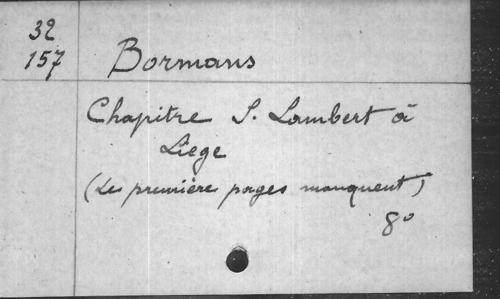 32
157
Bormans
Chapitre S. Lambert à
Liège
(Les première pages manquent)
8°